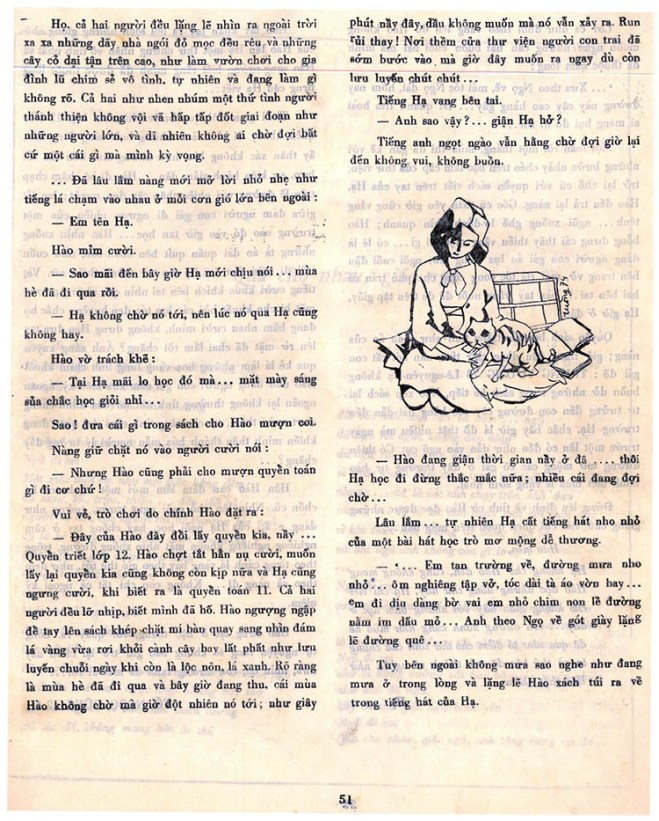 Họ, cả hai người đều lặng lẽ nhìn ra ngoài trời
xa xa những dãy nhà ngói đỏ mọc đều rêu và những
cây cỏ dại tận trên cao, như làm vườn chơi cho gia
đình lũ chim sẻ vô tình, tự nhiên và đang làm gì
không rõ. Cả hai như nhen nhúm một thứ tình người
thánh thiện không vội vã hấp tấp đốt giai đoạn như
những người lớn, và dĩ nhiên không ai chờ đợi bất
cứ một cái gì mà mình kỳ vọng.
... Đã lâu lắm nàng mới mở lời nhỏ nhẹ như
tiếng lá chạm vào nhau ở mỗi cơn gió lớn bên ngoài :
— Em tên Hạ.
Hào mỉm cười.
— Sao mãi đến bây giờ Hạ mới chịu nói... mùa
hè đã đi qua rồi.
— Hạ không chờ nó tới, nên lúc nó qua Hạ cũng
không hay.
Hào vờ trách khẽ :
— Tại Hạ mãi lo học đó mà... mặt mày sáng
sủa chắc học giỏi nhỉ...
Sao ! đưa cái gì trong sách cho Hào mượn coi.
Nàng giữ chặt nó vào người cười nói :
— Nhưng Hào cũng phải cho mượn quyền toán
gì đi cơ chứ !
Vui vẻ, trò chơi do chính Hào đặt ra :
— Đây của Hào đây đổi lấy quyền kia, nầy ...
Quyền triết lớp 12. Hào chợt tắt hẳn nụ cười, muốn
lấy lại quyền kia cũng không còn kịp nữa và Hạ cũng
ngưng cười, khi biết ra là quyền toán 11. Cả hai
người đều lỡ nhịp, biết mình đã hố. Hào ngượng ngập
để tay lên sách khép chặt mí bàn quay sang nhìn đám
lá vàng vừa rơi khỏi cành cây bay lất phất như lưu
luyến chuỗi ngày khi còn là lộc nõn, lá xanh. Rõ ràng
là mùa hè đã đi qua và bây giờ đang thu, cái mùa
Hào không chờ mà giờ đột nhiên nó tới ; như giây
phút nầy đây, dầu không muốn mà nó vẫn xảy ra. Run
rủi thay ! Nơi thềm cửa thư viện người con trai đã
sớm bước vào mà giờ đây muốn ra ngay dù còn
lưu luyến chút chút...
Tiếng Hạ vang bên tai.
— Anh sao vậy ?... giận Hạ hở ?
Tiếng anh ngọt ngào vẫn hằng chờ đợi giờ lại
đến không vui, không buồn.
tuong 74
— Hào đang giận thời gian nầy ở đâ .... thôi
Hạ học đi đừng thắc mắc nữa ; nhiều cái đang đợi
chờ...
Lâu lắm... tự nhiên Hạ cất tiếng hát nho nhỏ
của một bài hát học trò mơ mộng dễ thương.
— «.... Em tan trường về, đường mưa nho
nhỏ... ôm nghiêng tập vở, tóc dài tà áo vờn bay...
em đi dịu dàng bờ vai em nhỏ chim non lề đường
nằm im dấu mỏ... Anh theo Ngọ về gót giày lặng
lẽ đường quê...
Tuy bên ngoài không mưa sao nghe như đang
mưa ở trong lòng và lặng lẽ Hào xách túi ra về
trong tiếng hát của Hạ.
51